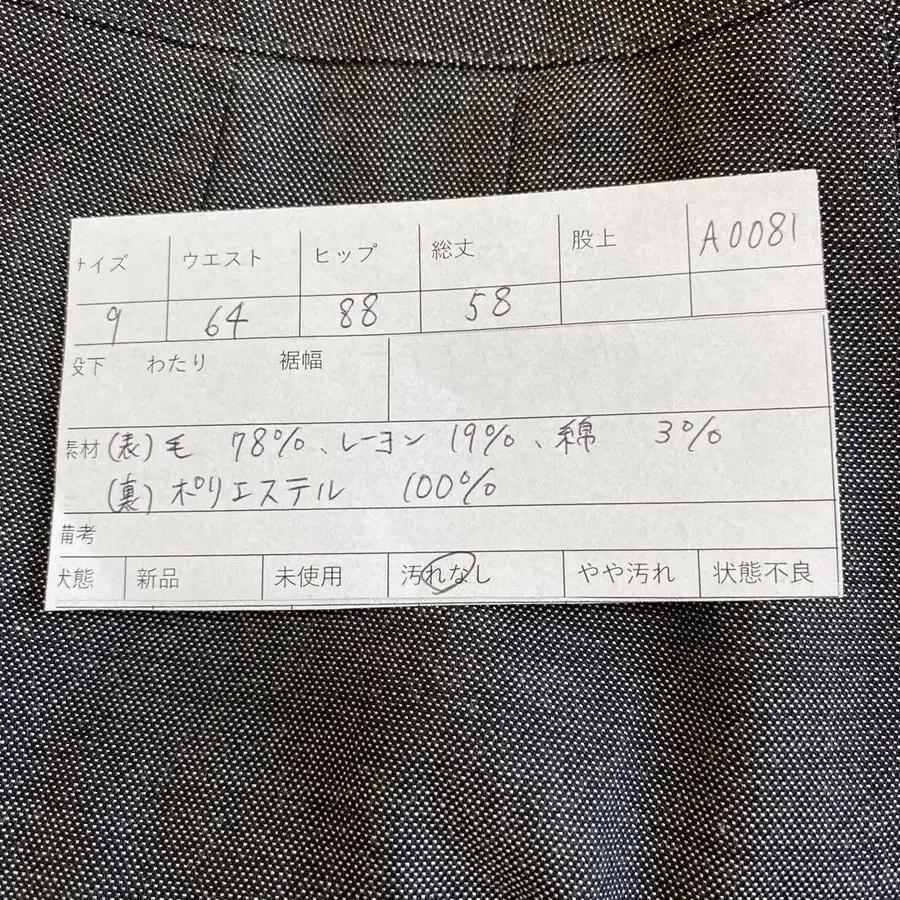 サイズ ウエスト ヒップ 総丈 股上 A0081
9 64 88 58
股下 わたり 裾幅
素材 (表) 毛 78%、レーヨン 19%、綿 3%
(裏) ポリエステル 100%
備考
状態 新品 未使用 汚れなし やや汚れ 状態不良